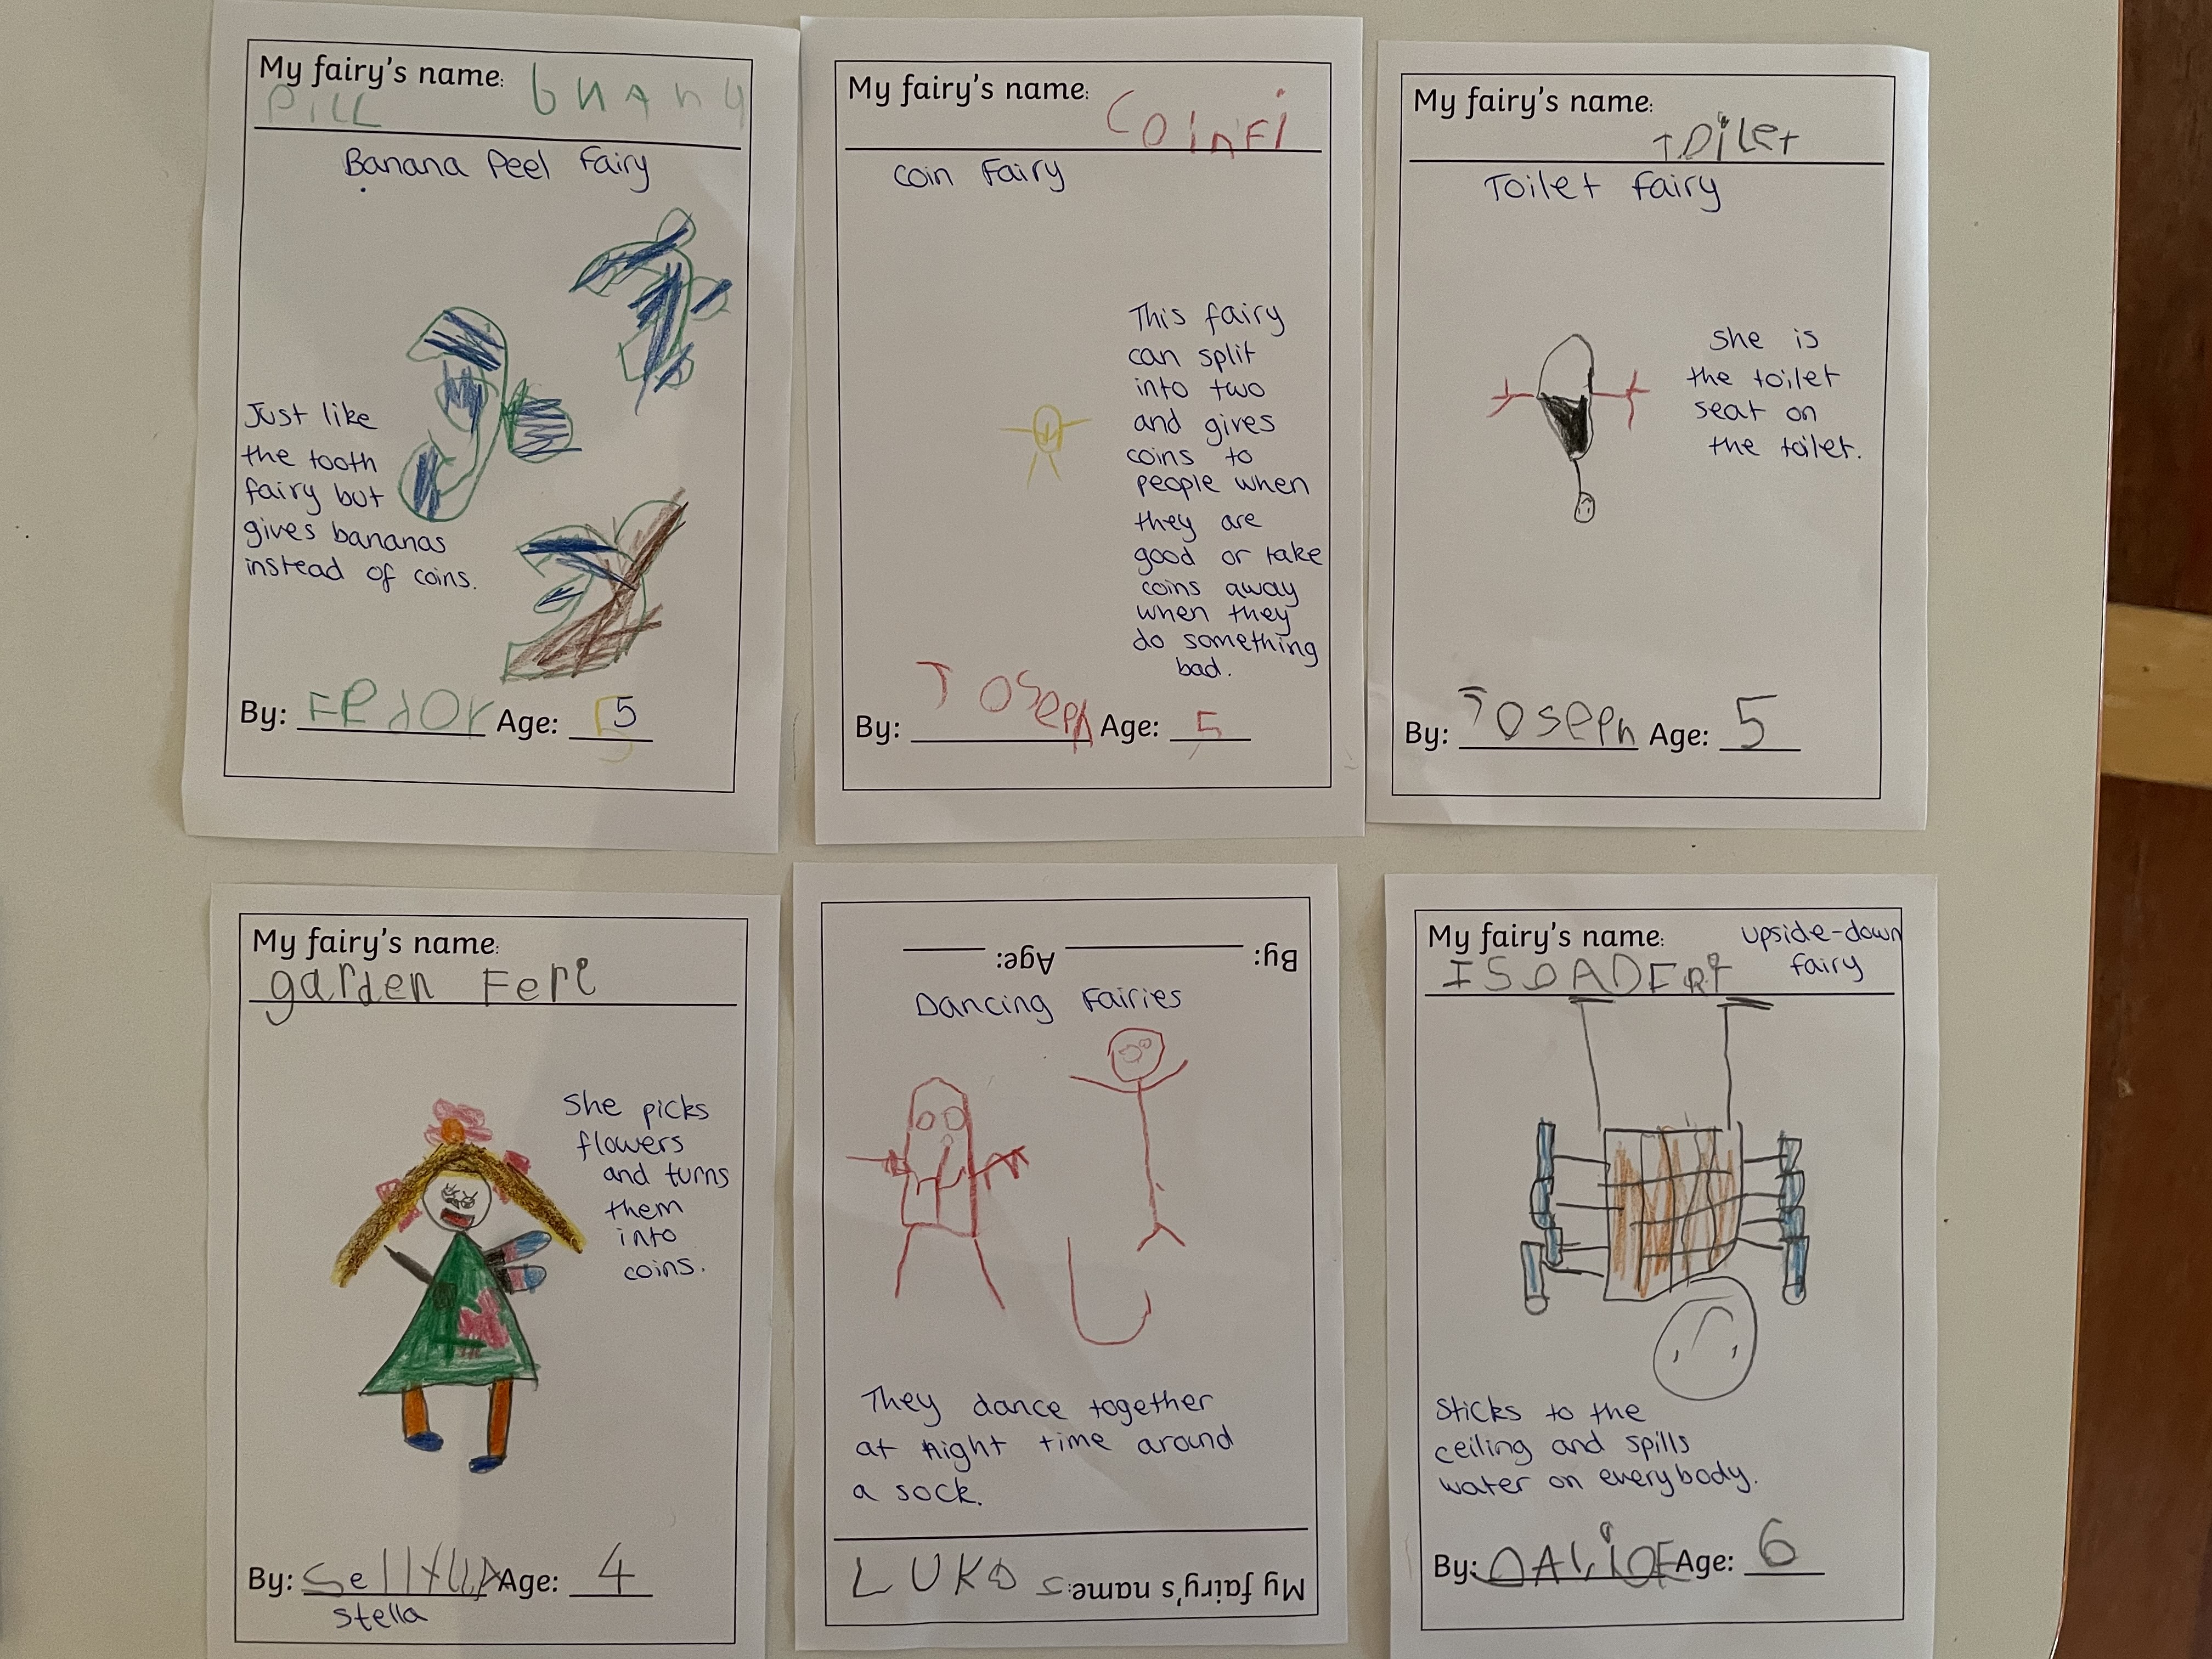 My fairy's name: bnany
PiLL
Banana Peel Fairy
Just like
the tooth
fairy but
gives bananas
instead of coins.
By: FedOr Age: 5
My fairy's name: COinFi
Coin Fairy
This fairy
can split
into two
and gives
coins to
people when
they are
good or take
coins away
when they
do something
bad.
By: JOSeph Age: 5
My fairy's name:
tOiLet
Toilet fairy
She is
the toilet
seat on
the toilet.
By: JOSePh Age: 5
My fairy's name:
garden Fere
She picks
flowers
and turns
them
into
coins.
By: Age: 4
Stella
By: Age:
Dancing Fairies
They dance together
at night time around
a sock.
My fairy's name: LUKaS
My fairy's name: upside-down
fairy
Sticks to the
ceiling and spills
water on everybody.
By: Age: 6